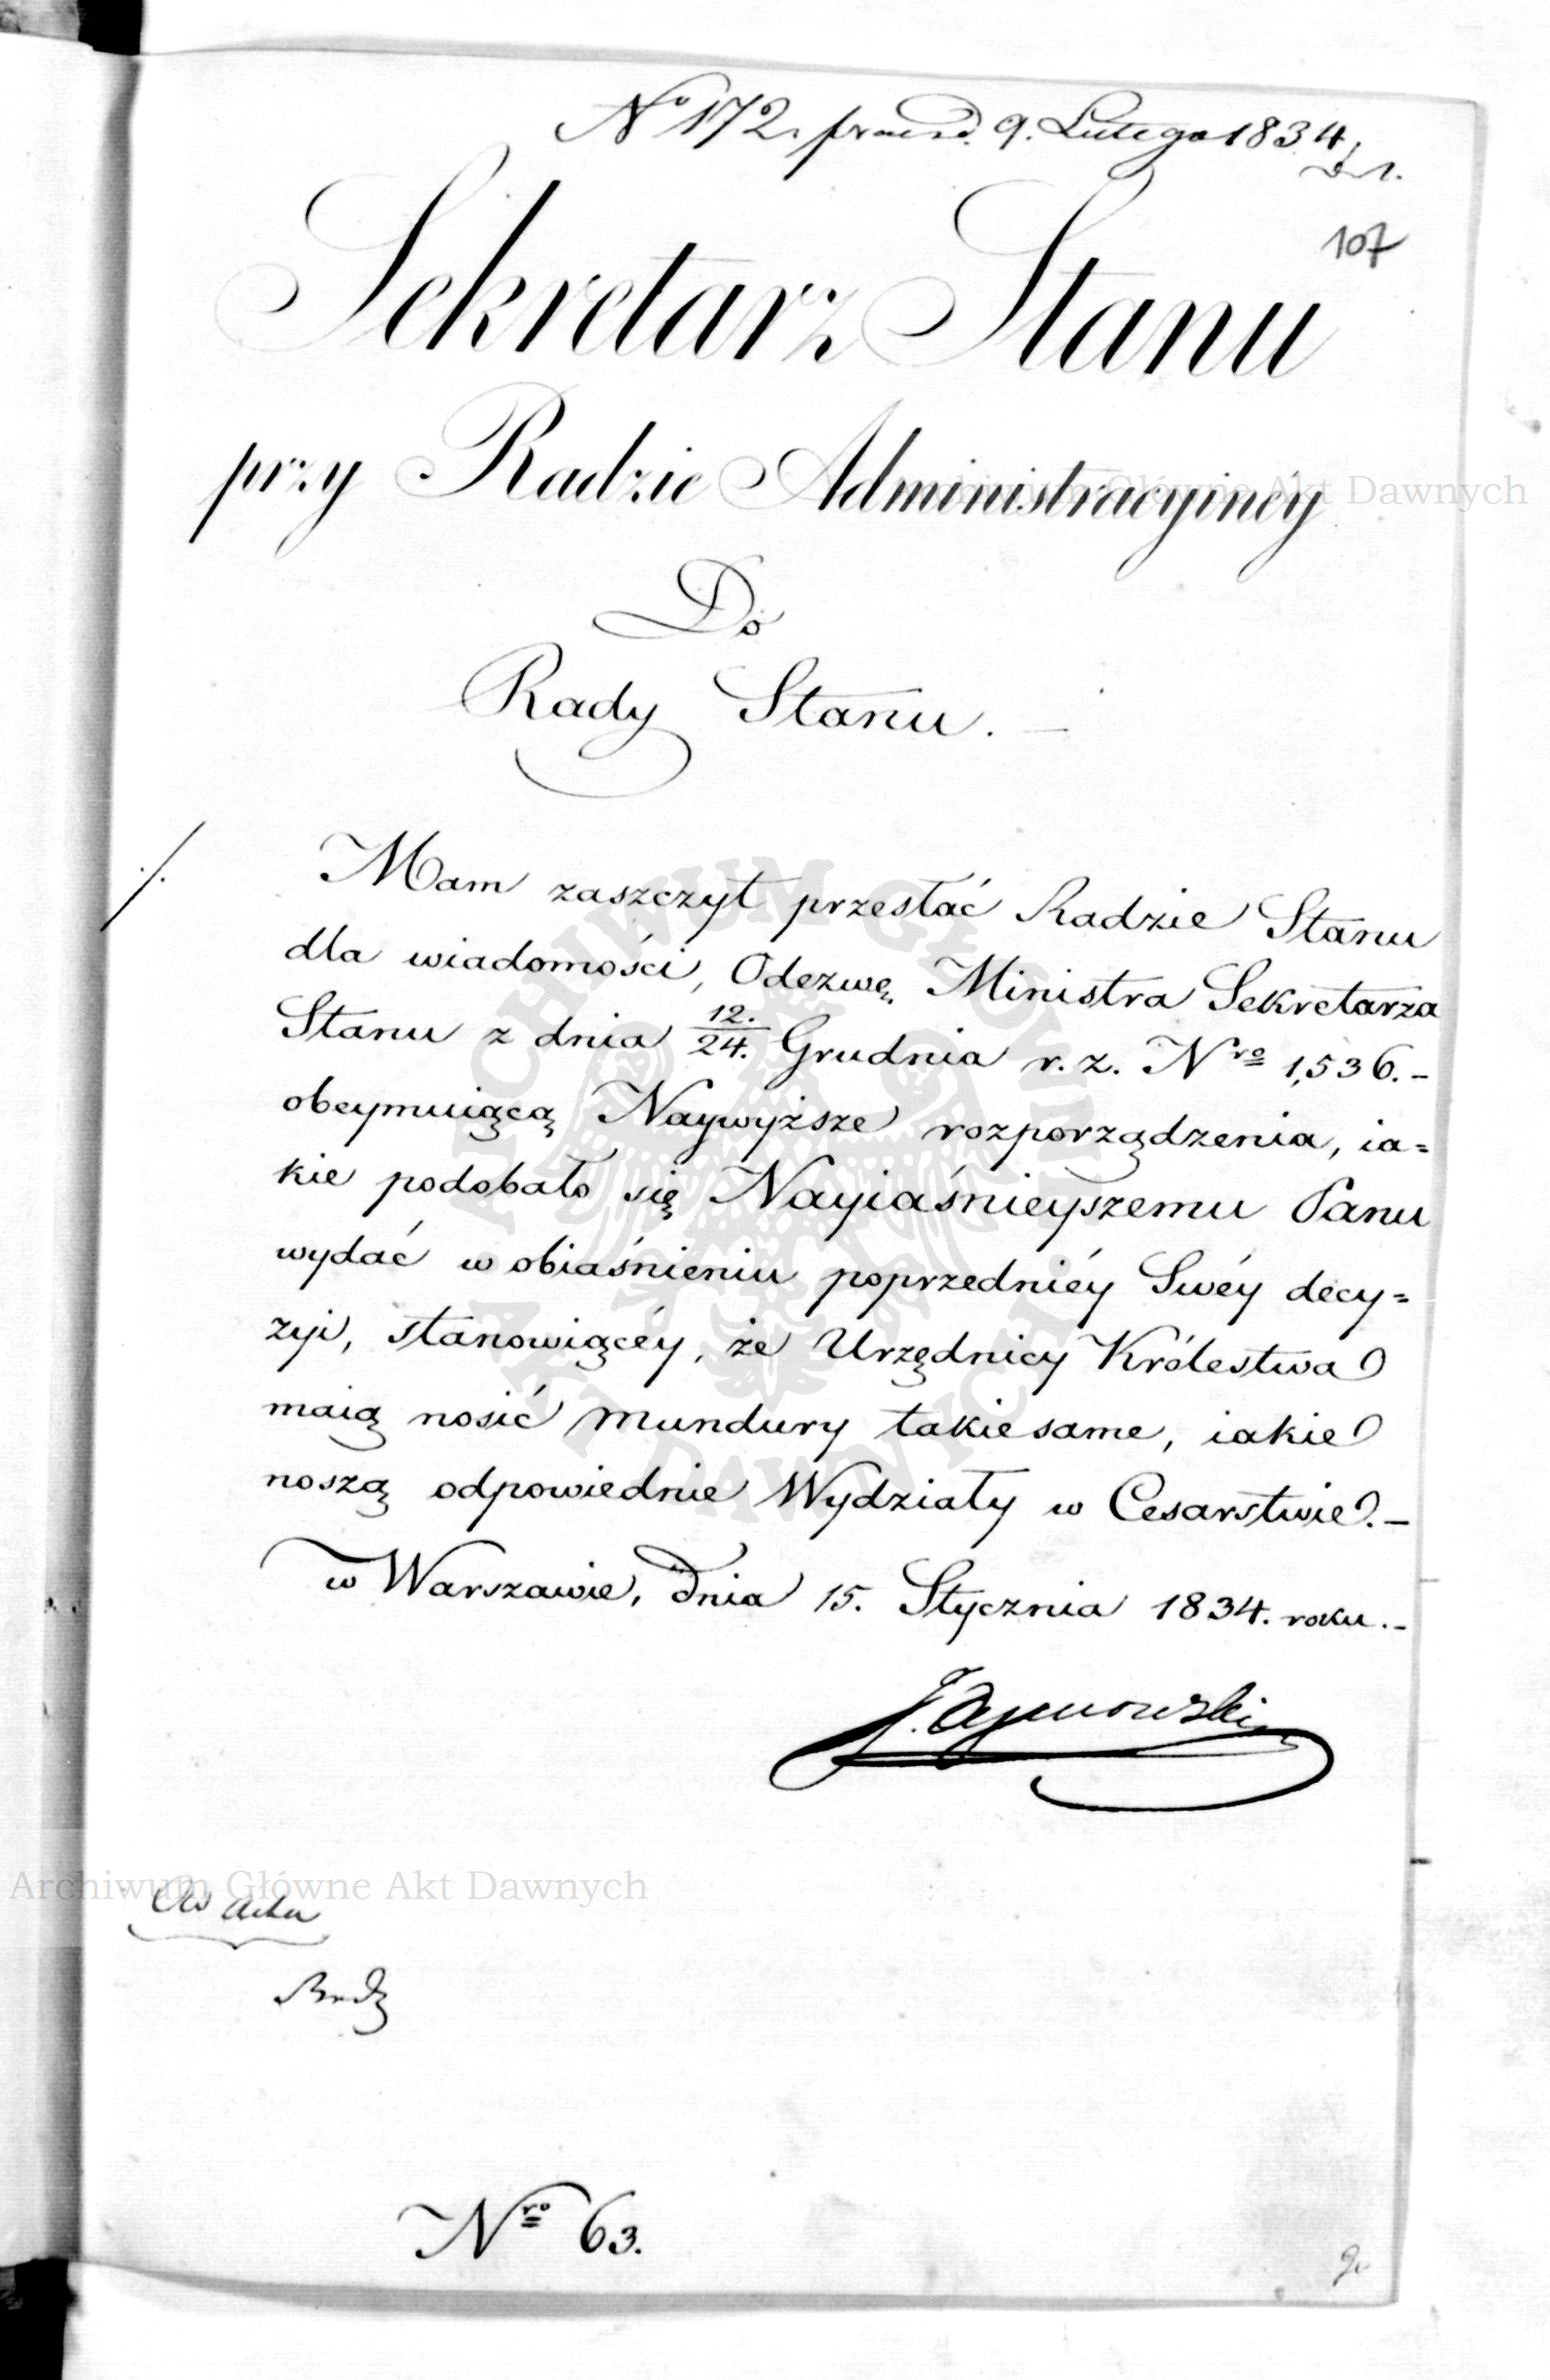 No 172. praes d. 9. Lutego 1834
107
Sekretarz Stanu
przy Radzie Administracyinéy
Do
Rady Stanu. —
Mam zaszczyt przesłać Radzie Stanu
dla wiadomości, Odezwę Ministra Sekretarza
Stanu z dnia 12./24. Grudnia r. z. Nro 1,536. –
obeymuiącą Naywyższe rozporządzenia, ia=
kie podobało się Nayiaśnieyszemu Panu
wydać w obiaśnieniu poprzedniéy Swéy decy=
zyi, stanowiącéy, że Urzędnicy Królestwa
maią nosić mundury takie same, iakie
noszą odpowiednie Wydziały w Cesarstwie. –
w Warszawie, dnia 15. Stycznia 1834. roku. –
J. Tymowski
Ad acta
Nro 63.
Archiwum Główne Akt Dawnych
Archiwum Główne Akt Dawnych
ARCHIWUM GŁÓWNE AKT DAWNYCH